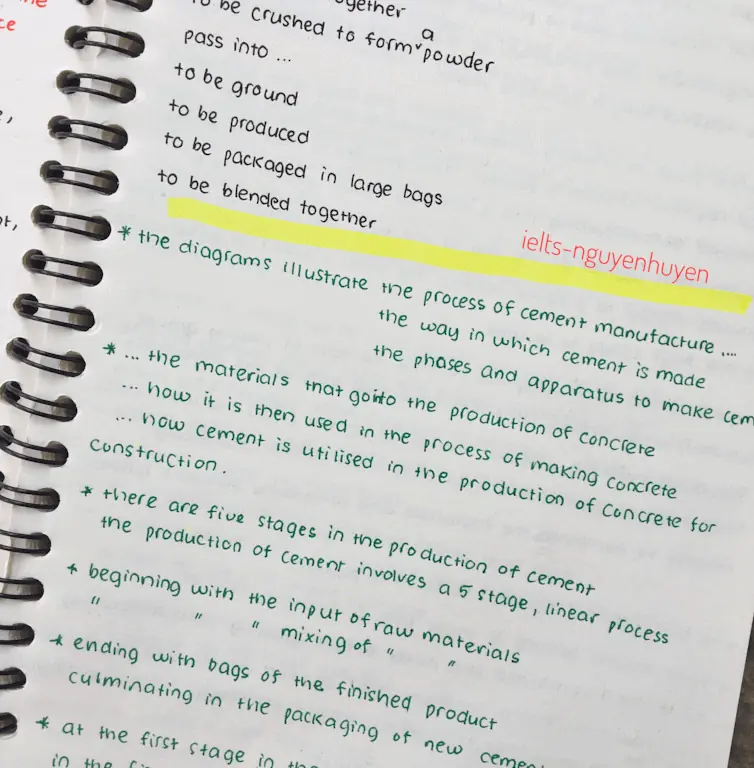 ogether
to be crushed to form a powder
pass into ...
to be ground
to be produced
to be packaged in large bags
to be blended together
ielts-nguyenhuyen
* the diagrams illustrate the process of cement manufacture ....
the way in which cement is made
the phases and apparatus to make cem
* ... the materials that go into the production of concrete
... how it is then used in the process of making concrete
... how cement is utilised in the production of concrete for
construction.
* there are five stages in the production of cement
the production of cement involves a 5 stage, linear process
* beginning with the input of raw materials
" " " mixing of " "
* ending with bags of the finished product
culminating in the packaging of new cement
* at the first stage in the
in the